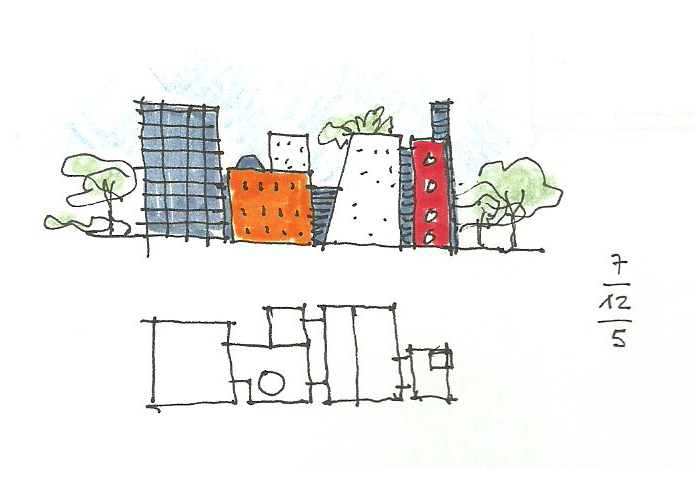 7
12
5